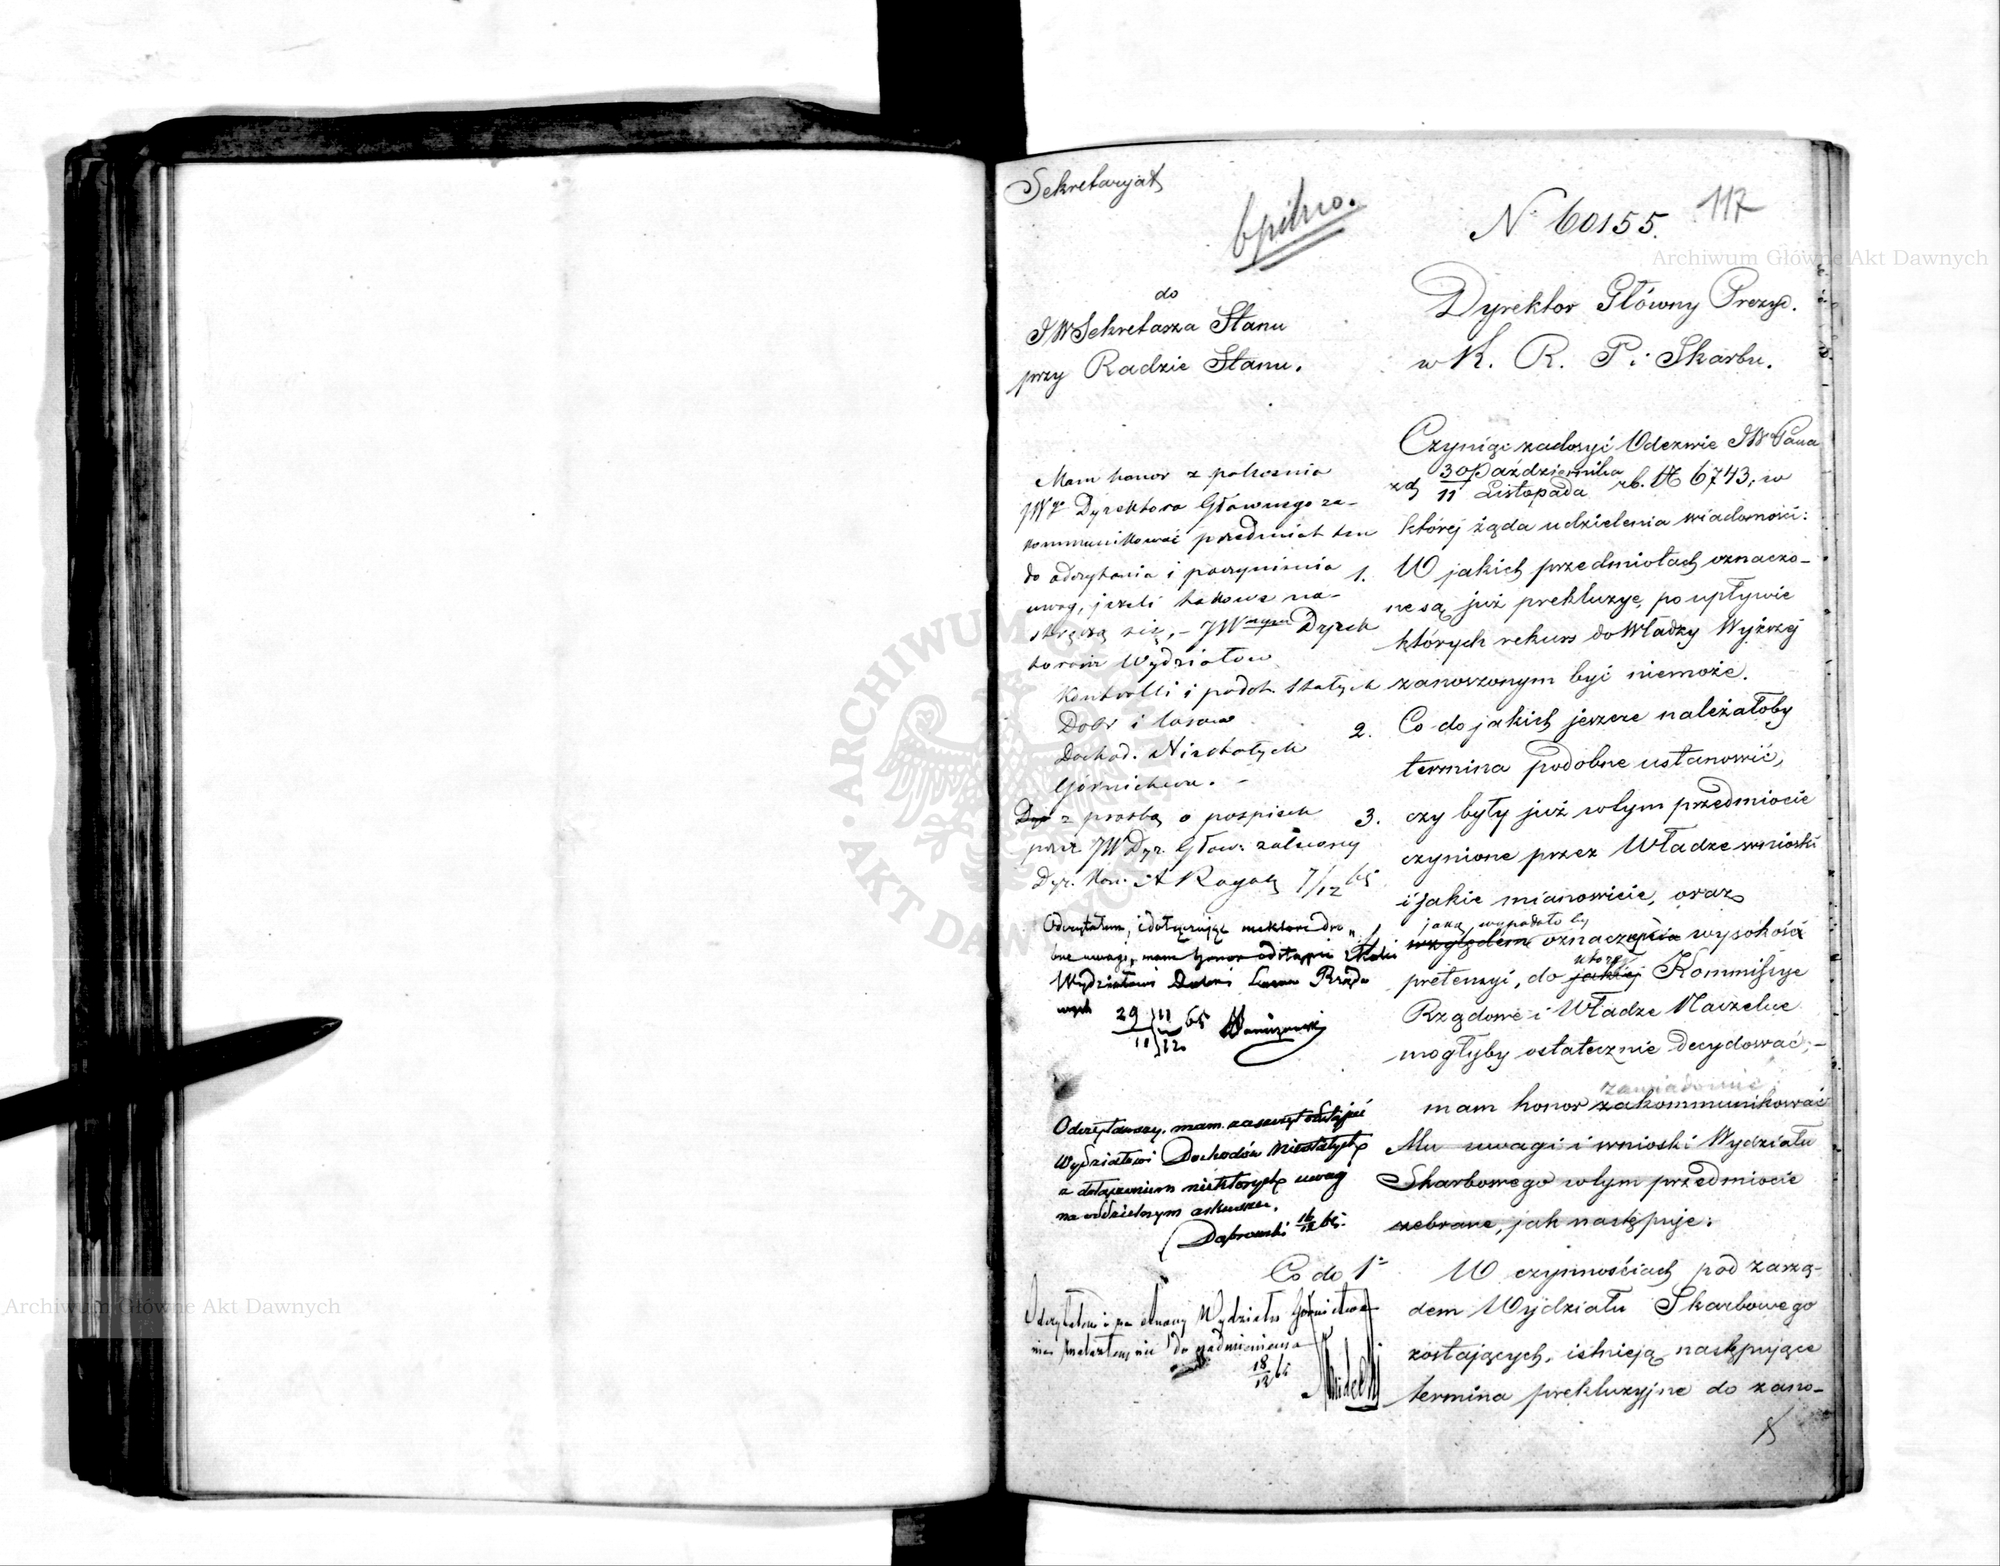 Sekretaryat
bpilno.
No 60155.
117
do
JW Sekretarza Stanu
przy Radzie Stanu.
Dyrektor Główny Prezyd.
w K. R. P. i Skarbu.
Mam honor z polecenia
JWgo Dyrektora Głównego za-
kommunikować przedmiot ten
do odczytania i poczynienia
uwag, jeżeli takowe na-
stręczą się, – JW Dyrek
torom Wydziałów
Kontrolli i podat. Stałych
Dobr i Lasow
Dochod. Niestałych
Górnictwa. –
Dyr z prosbą o pospiech
przez JW Dyr. Głów: zalecony
Dyr. Kan. 7/12 65
Odczytałem, i dołączając niektóre dro„
bne uwagi, mam honor odstąpić
Wydziałowi Dobr i Lasow Rządo
wych
29/11 11/12 65
Odczytawszy, mam zaszczyt odstąpić
Wydziałowi Dochodów Niestałych
z dołączeniem niektórych uwag
na oddzielnym arkuszu.
Dąbrowski 16/12 65.
Odczytałem i ze strony Wydziału Górnictwa
nic do nadmienienia
18/12 65
Czyniąc zadosyć Odezwie JW Pana
z d 30 Października / 11 Listopada r.b. N 6743, w
której żąda udzielenia wiadomości:
1. W jakich przedmiotach oznaczo-
ne są już prekluzye, po upływie
których rekurs do Władzy Wyższej
zanoszonym być niemoże.
2. Co do jakich jeszcze należałoby
termina podobne ustanowić,
3. czy były już w tym przedmiocie
czynione przez Władze wnioski
i jakie mianowicie, oraz
jaką wypadało by
względem oznaczenia wysokość
której
pretensyi, do jakiej Kommissye
Rządowe i Władze Naczelne
mogłyby ostatecznie decydować; –
zawiadomić
mam honor zakommunikować
Mu uwagi i wnioski Wydziału
Skarbowego w tym przedmiocie
zebrane, jak następuje:
Co do 1o W czynnościach pod zarzą-
dem Wydziału Skarbowego
zostających, istnieją następujące
termina prekluzyjne do zano-
Archiwum Główne Akt Dawnych
Archiwum Główne Akt Dawnych
ARCHIWUM
AKT DAWNYCH